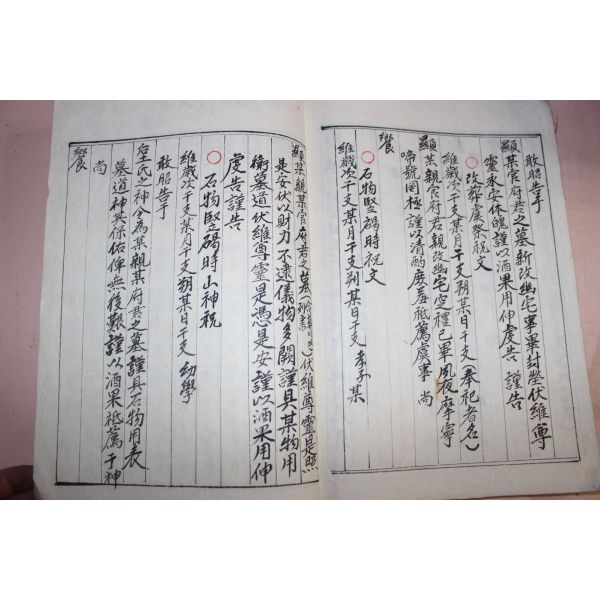 敢昭告于
顯某官府君之墓新改幽宅事畢封塋伏維尊
靈永安体魄謹以酒果用伸虔告謹告
○改葬虞祭祝文
維歲次干支某月干支朔某日干支(奉祀者名)
顯某親官府君親改幽宅窆禮已畢夙夜摩寧
啼號罔極謹以清酌庶羞祗薦虞事尚
饗
○石物竪碣時祝文
維歲次干支某月干支朔某日干支孝子某
顯某親某官府君之墓()伏維尊靈是照
是安伏以財力不逮儀物多闕謹具某物用
衛墓道伏維尊靈是憑是安謹以酒果用伸
虔告謹告
○石物竪碣時山神祝
維歲次干支某月干支朔某日干支幼學
敢昭告于
土氏之神今為某親某府君之墓謹具石物用表
墓道神其保佑俾無後艱謹以酒果祗薦于神
尚
饗